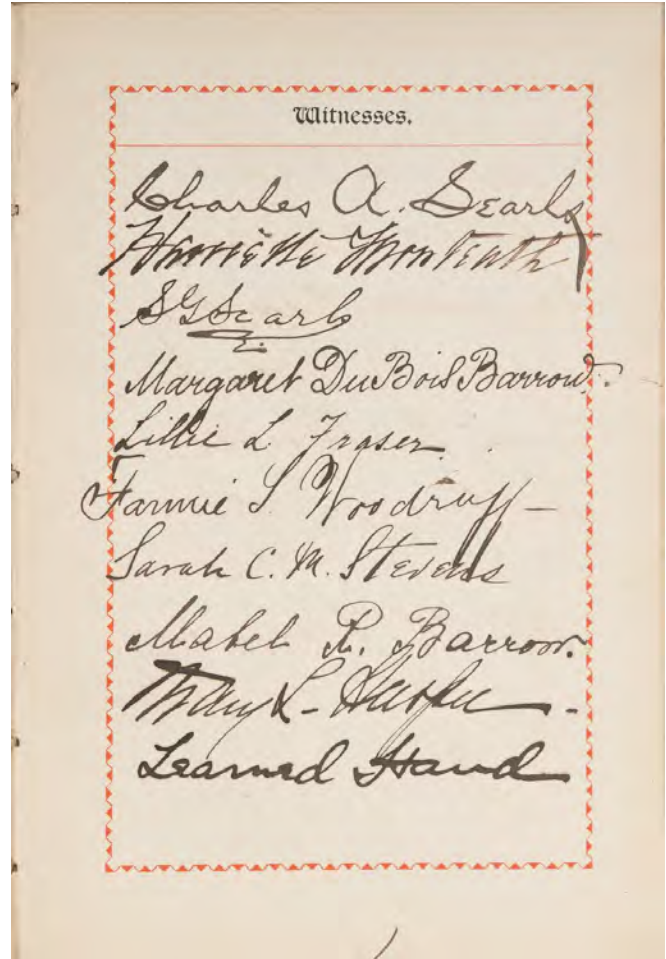 Witnesses.
Charles A. Searls
Henriette Monteath
S G Searls
Margaret DuBois Barrow.
Lillie L. Fraser.
Fannie S. Woodruff
Sarah C. M. Stevens
Mabel R. Barrow.
Mary L.
Learned Hand